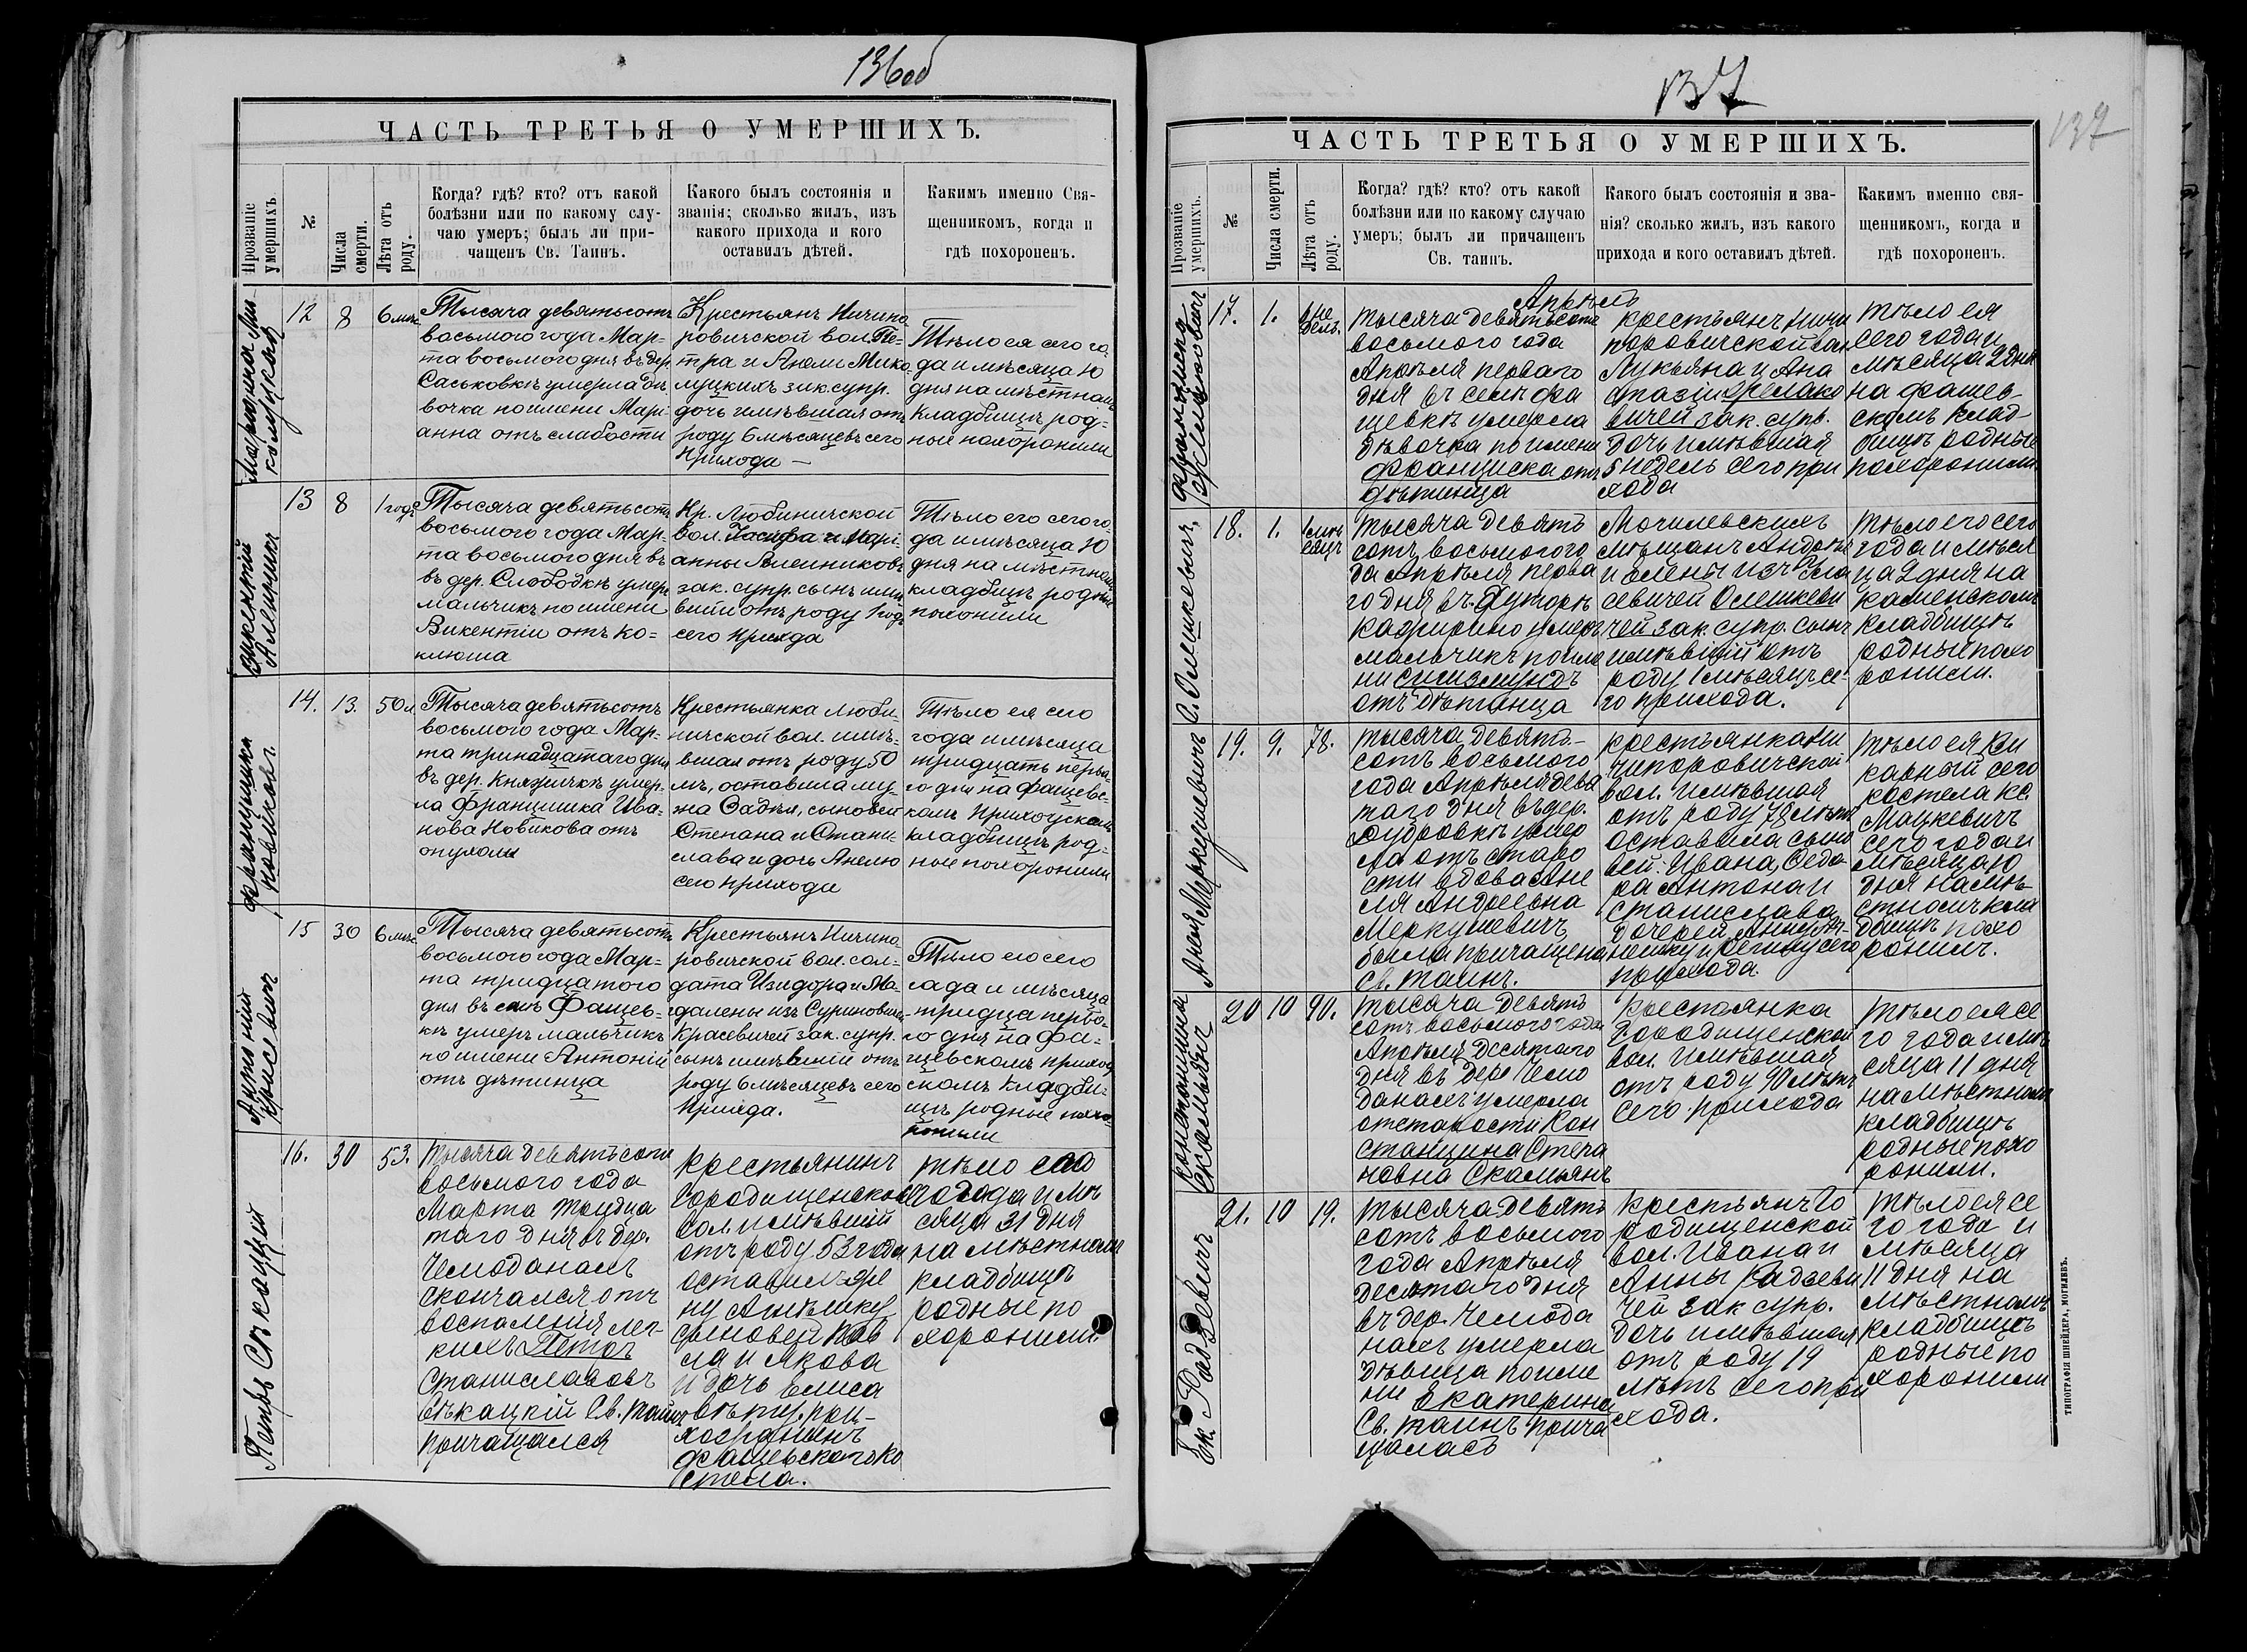 136об
ЧАСТЬ ТРЕТЬЯ О УМЕРШИХЪ.
Прозваніе умершихъ.
№
Числа смерти.
Лѣта отъ роду.
Когда? гдѣ? кто? отъ какой
болѣзни или по какому слу-
чаю умеръ; былъ ли при-
чащенъ Св. Таинъ.
Какого былъ состоянія и
званія; сколько жилъ, изъ
какого прихода и кого
оставилъ дѣтей.
Какимъ именно Свя-
щенникомъ, когда и
гдѣ похороненъ.
12
8
6 мѣс
Тысяча девятьсотъ
восьмого года Мар-
та восьмого дня въ дер.
Саськовкѣ умерла дѣ
вочка по имени Марі-
анна отъ слабости
Крестьянъ Ничипо
ровичской вол. Пе-
тра и Анели Мико
луцкихъ зак. супр.
дочь имѣвшая отъ
роду 6 мѣсяцевъ сего
прихода —
Тѣло ея сего го-
да и мѣсяца 10
дня на мѣстномъ
кладбищѣ род-
ные похоронили
Викентій
Алейникъ
13
8
1 годъ
Тысяча девятьсотъ
восьмого года Мар-
та восьмого дня въ
въ дер. Слободкѣ умеръ
мальчикъ по имени
Викентій отъ ко-
клюша
Кр. Любиничской
вол. Іосифа и Марі-
анны
зак. супр. сынъ имѣ
вшій отъ роду 1 годъ
сего прихода
Тѣло его сего го
да и мѣсяца 10
дня на мѣстномъ
кладбищѣ родные
похонили
Францишка
Новикова
14.
13.
50 л
Тысяча девятьсотъ
восьмого года Мар-
та тринадцатаго дня
въ дер. Княжичкѣ умер-
ла Францишка Ива-
нова Новикова отъ
опухоли
Крестьянка Люби-
ничской вол. имѣ-
вшая отъ роду 50
лѣ, оставила му-
жа Фадѣя, сыновей
Степана и Стани-
слава и дочь Анелю
сего прихода
Тѣло ея сего
года и мѣсяца
тридцать перва-
го дня на Фащевс-
комъ приходскомъ
кладбищѣ род-
ные похоронили
Антоній
Красевичъ
15
30
6 мѣс
Тысяча девятьсотъ
восьмого года Мар-
та тридцатого
дня въ селѣ Фащев-
кѣ умеръ мальчикъ
по имени Антоній
отъ дѣтинца
Крестьянъ Ничипо
ровичской вол. сол-
дата Изидора и Ма-
гдалены изъ
Красевичей зак. супр.
сынъ имѣвшій отъ
роду 6 мѣсяцевъ сего
прихода.
Тѣло его сего
года и мѣсяца
тридца перва-
го дня на Фа-
щевскомъ приход
скомъ кладби-
щѣ родные похо
ронили
Петръ Сѣкацкій
16.
30
53.
Тысяча девятьсотъ
восьмого года
Марта тридца
таго дня въ дер.
Чемоданахъ
скончался отъ
воспаленія лег-
кихъ Петръ
Станиславовъ
Сѣкацкій Св. Таинъ
причащался
Крестьянинъ
Городищенской
вол. имѣвшій
отъ роду 53 года
оставилъ же
ну Агнѣшку
сыновей Пав
ла и Якова
и дочь Елиса
вѣту, при-
хожанинъ
Фащевскаго ко
стела.
Тѣло его
сего года и мѣ
сяца 31 дня
на мѣстномъ
кладбищѣ
родные по
хоронили.
137
137
ЧАСТЬ ТРЕТЬЯ О УМЕРШИХЪ.
Прозваніе умершихъ.
№
Числа смерти.
Лѣта отъ роду.
Когда? гдѣ? кто? отъ какой
болѣзни или по какому случаю
умеръ; былъ ли причащенъ
Св. таинъ.
Какого былъ состоянія и зва-
нія? сколько жилъ, изъ какого
прихода и кого оставилъ дѣтей.
Какимъ именно свя-
щенникомъ, когда и
гдѣ похороненъ.
Апрѣль
Франциска
17.
1.
Тысяча девятьсотъ
восьмого года
Апрѣля перваго
дня въ селѣ Фа
щевкѣ умерла
дѣвочка по имени
Франциска отъ
дѣтинца
Крестьянъ Ничи
поровичской вол
Лукьяна и Ана
стазіи
вичей зак. супр.
дочь имѣвшая
5 недѣль сего при
хода
Тѣло ея
сего года и
мѣсяца 2 дня
на Фащев-
скомъ клад-
бищѣ родные
похоронили
С. Олешкевичъ
18.
1.
1 мѣ
сяцъ
Тысяча девять
сотъ восьмого го
да Апрѣля перва
го дня въ Хуторѣ
Казиміро умеръ
мальчикъ по име
ни Сигизмундъ
отъ дѣтинца
Могилевскихъ
мѣщанъ Андрея
и Елены изъ
севичей Олешкеви
чей зак. супр. сынъ
имѣвшій отъ
роду 1 мѣсяцъ се
го прихода.
Тѣло его сего
года и мѣся
ца 2 дня на
Каменскомъ
кладбищѣ
родные похо
ронили.
Анеля Меркушевичъ
19.
9.
78.
Тысяча девять-
сотъ восьмого
года Апрѣля девя
таго дня въ дер.
Дубровкѣ умер
ла отъ старо
сти вдова Ане
ля Андреевна
Меркушевичъ
была причащена
Св. Таинъ.
Крестьянка Ни
чипоровичской
вол. имѣвшая
отъ роду 78 лѣтъ
оставила сыно
вей: Ивана, Федо
ра Антона и
Станислава
дочерей Анну, Аг-
нешку и Регину сего
прихода.
Тѣло ея Ви
карный сего
костела кс.
Мацкевичъ
сего года и
мѣсяца 10
дня на мѣ-
стномъ кла
дбищѣ похо
ронилъ.
Констанція
Скамьянъ
20
10
90.
Тысяча девять
сотъ восьмого года
Апрѣля десятаго
дня въ дер Чемо
данахъ умерла
отъ старости Кон
станцина Степа
новна Скамьянъ
Крестьянка
Городищенской
вол. имѣвшая
отъ роду 90 лѣтъ
сего прихода
Тѣло ея се
го года и мѣ
сяца 11 дня
на мѣстномъ
кладбищѣ
родные похо
ронили.
Ек. Радзевичъ
21.
10
19.
Тысяча девять
сотъ восьмого
года Апрѣля
десятаго дня
въ дер. Чемода
нахъ умерла
дѣвица по име
ни Екатерина
Св. таинъ прича
щалась
Крестьянъ Го
родищенской
вол. Ивана и
Анны Радзеви
чей зак супр.
дочь имѣвшая
отъ роду 19
лѣтъ сего при
хода.
Тѣло ея се
го года и
мѣсяца
11 дня на
мѣстномъ
кладбищѣ
родные по
хоронили
ТИПОГРАФІЯ ШНЕЙДЕРА, МОГИЛЕВЪ.